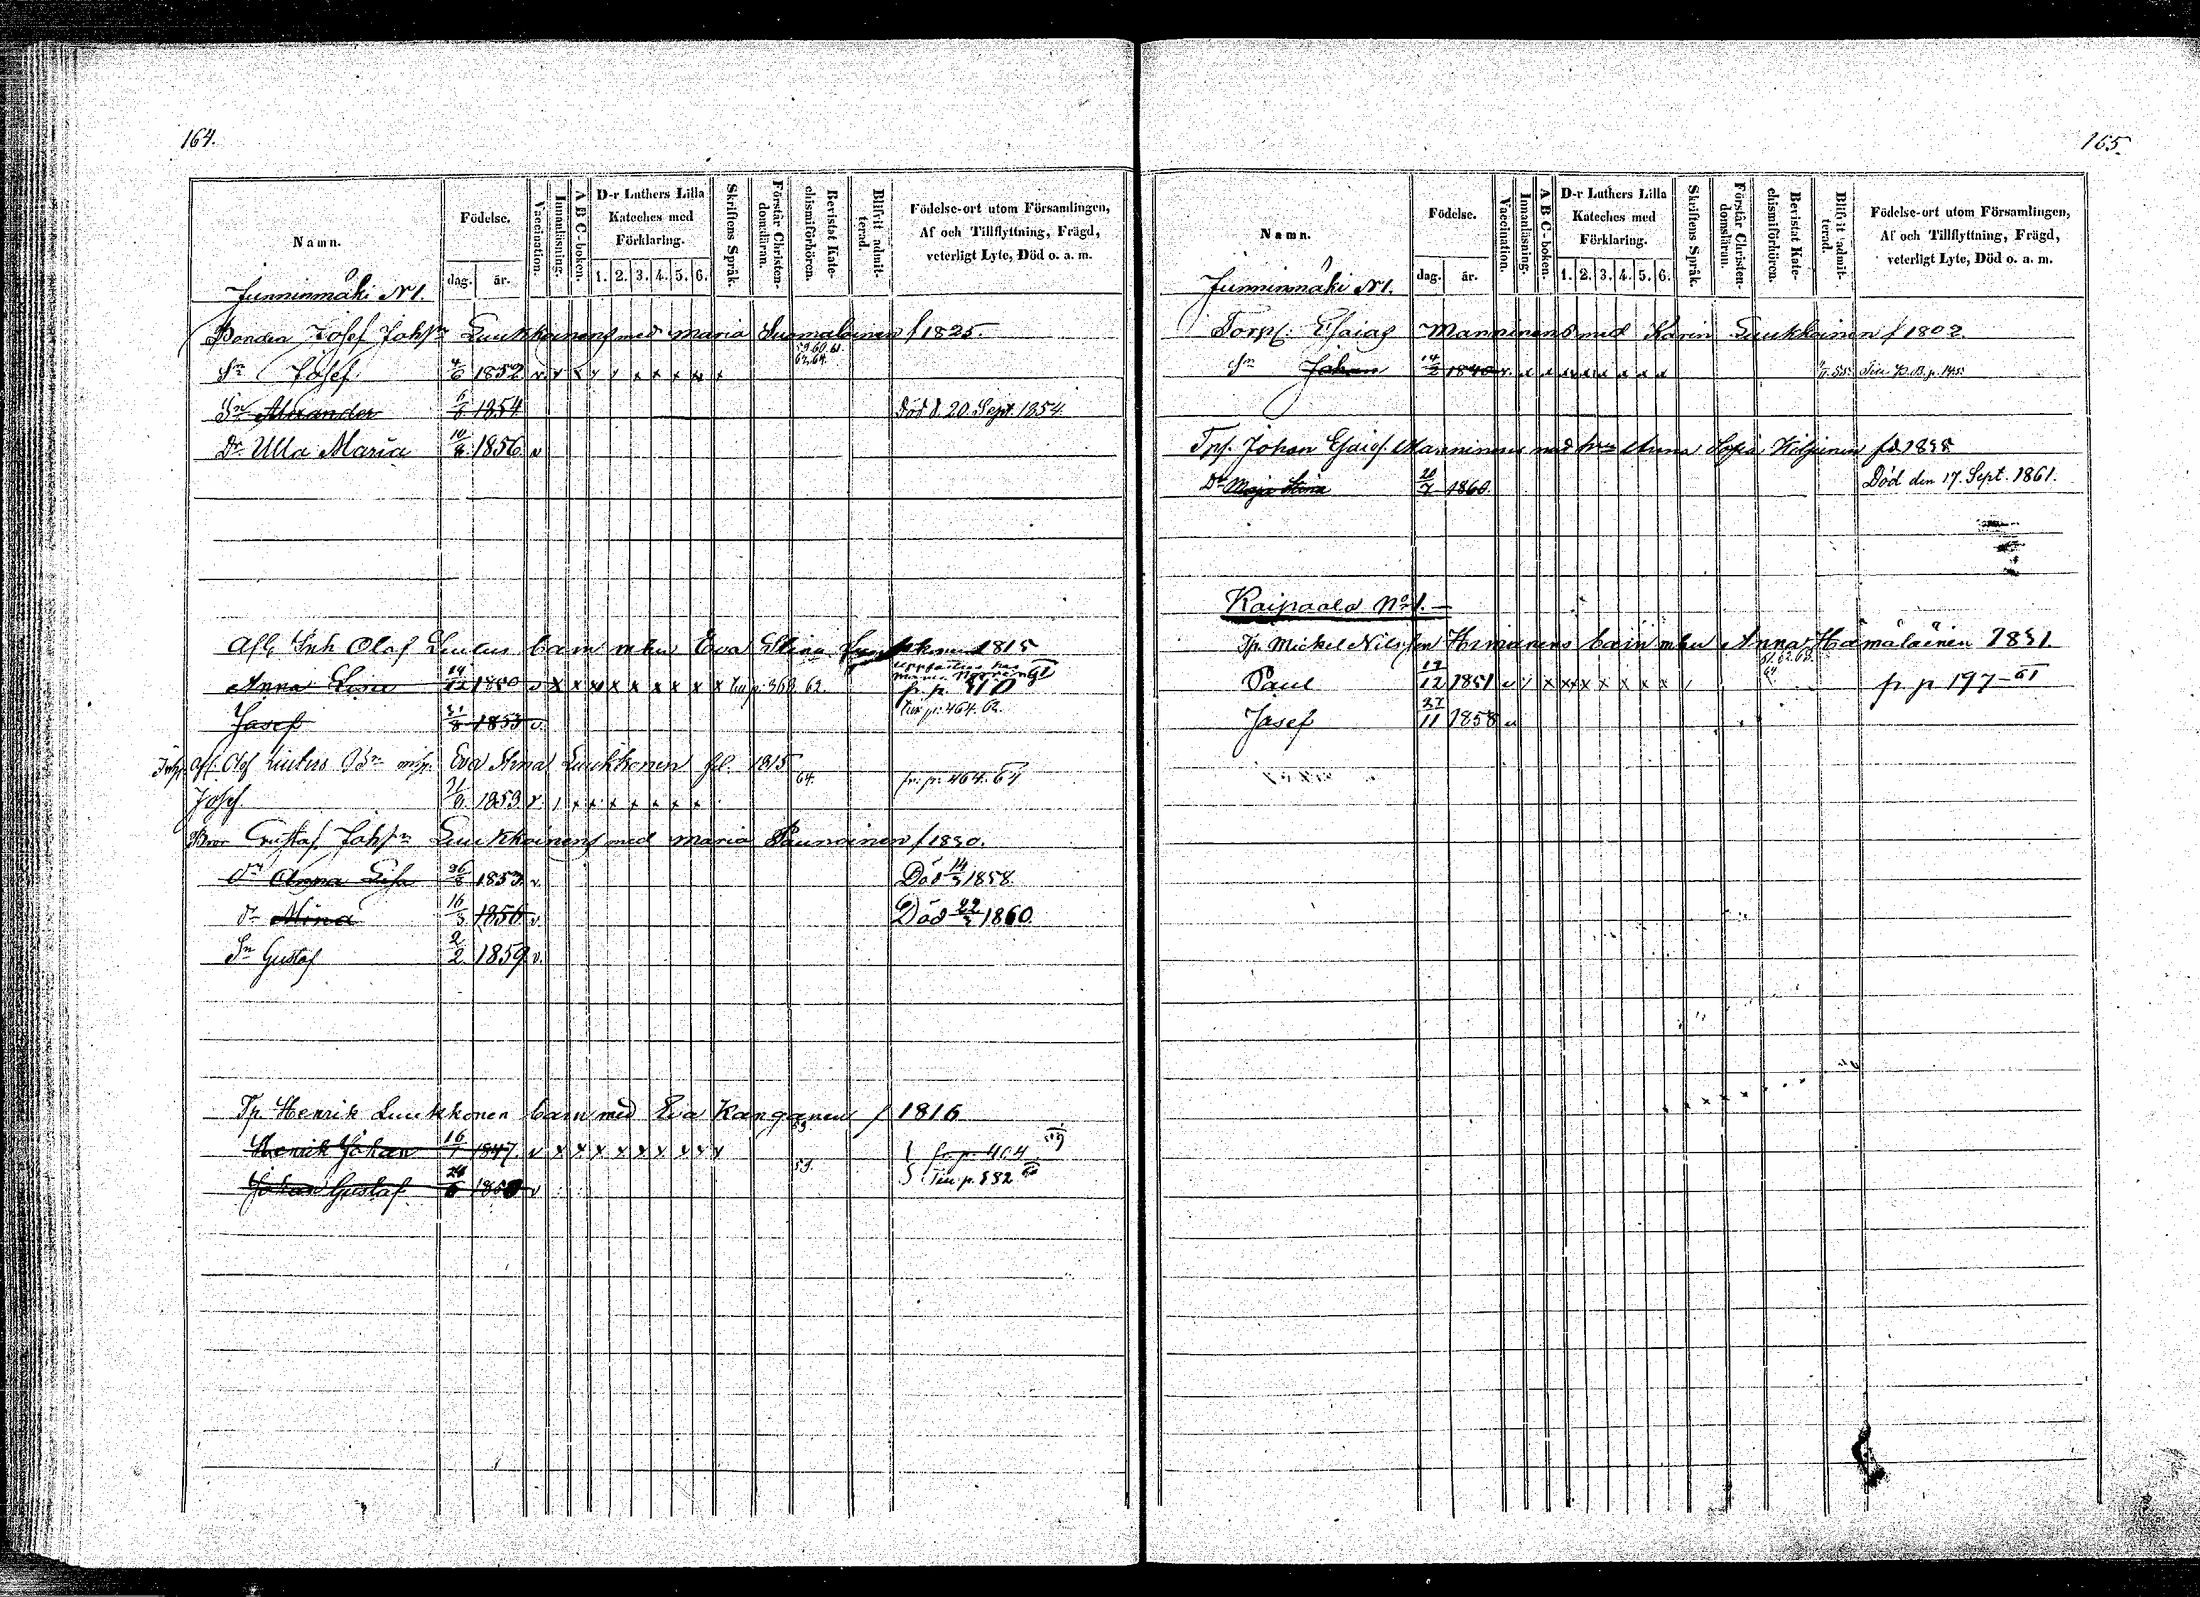 164.
Namn.
Födelse.
dag. år.
Vaccination.
Innanläsning.
A B C-boken.
D-r Luthers Lilla Kateches med Förklaring.
1. 2. 3. 4. 5. 6.
Skriftens Språk.
Förstår Christen-domsläran.
Bevistat Kate-chismiförhören.
Blifvit admit-terad.
Födelse-ort utom Församlingen,
Af och Tillflyttning, Frägd,
veterligt Lyte, Död o. a. m.
Junninmäki N 1.
Bonden Josef Johsn Luukkoinens med Maria Suomalainen f 1825.
59. 60. 61.
62. 64.
Sn Josef 4/6 1852 v x x x x x x x x x
Sn Alexander 1854 Död d. 20. Sept. 1854.
Dr Ulla Maria 10/8 1856 v
Afl. Inh Olof Liulius barn m hu Eva Stina 1815
Anna Lisa 14/12 1850 v x x x x x x x x x p. 363. 62. fr. p. 310
Josef 31/8 1853 v p. 464. 62.
Inhs. Afl. Olof Liulius Bn m. Eva Stina Luukkonen fd. 1815
64. fr. p. 464. 64
Josef 1853 v x x x x x x x
Bror Gustaf Johsn Luukkoinens med Maria Paunoinen f 1830.
dr Anna Lisa 26/8 1853 v Död 14/3 1858.
dr Mina 16/3 1856 v Död 22/3 1860.
Sn Gustaf 2/2 1859 v.
Tp Henrik Luukkonen barn med Eva Kanganen f 1816
Henrik Johan 16/7 1847 v x x x x x x x x x 59. fr. p. 404
Johan Gustaf 24/6 1850 v 59. p. 532
165.
Namn.
Födelse.
dag. år.
Vaccination.
Innanläsning.
A B C-boken.
D-r Luthers Lilla Kateches med Förklaring.
1. 2. 3. 4. 5. 6.
Skriftens Språk.
Förstår Christen-domsläran.
Bevistat Kate-chismiförhören.
Blifvit admit-terad.
Födelse-ort utom Församlingen,
Af och Tillflyttning, Frägd,
veterligt Lyte, Död o. a. m.
Junninmäki N 1.
Torp. Esaias Manninens med Karin Luukkoinen f 1802.
Sn Johan 14/2 1840 v. x x x x x x x x p. 145.
Tps. Johan Esaies. Manninens med hu Anna Sofia fd. 1838
Dr Maja Stina 20/7 1860. Död den 17. Sept. 1861.
Kaipaala No 1.
Tp. Mickel Nilsson Himanens barn m hu Anna Hämäläinen 1831.
61. 62. 63.
64
Paul 17/12 1851 v x x x x x x x x fr p 197 61
Josef 27/11 1858 v